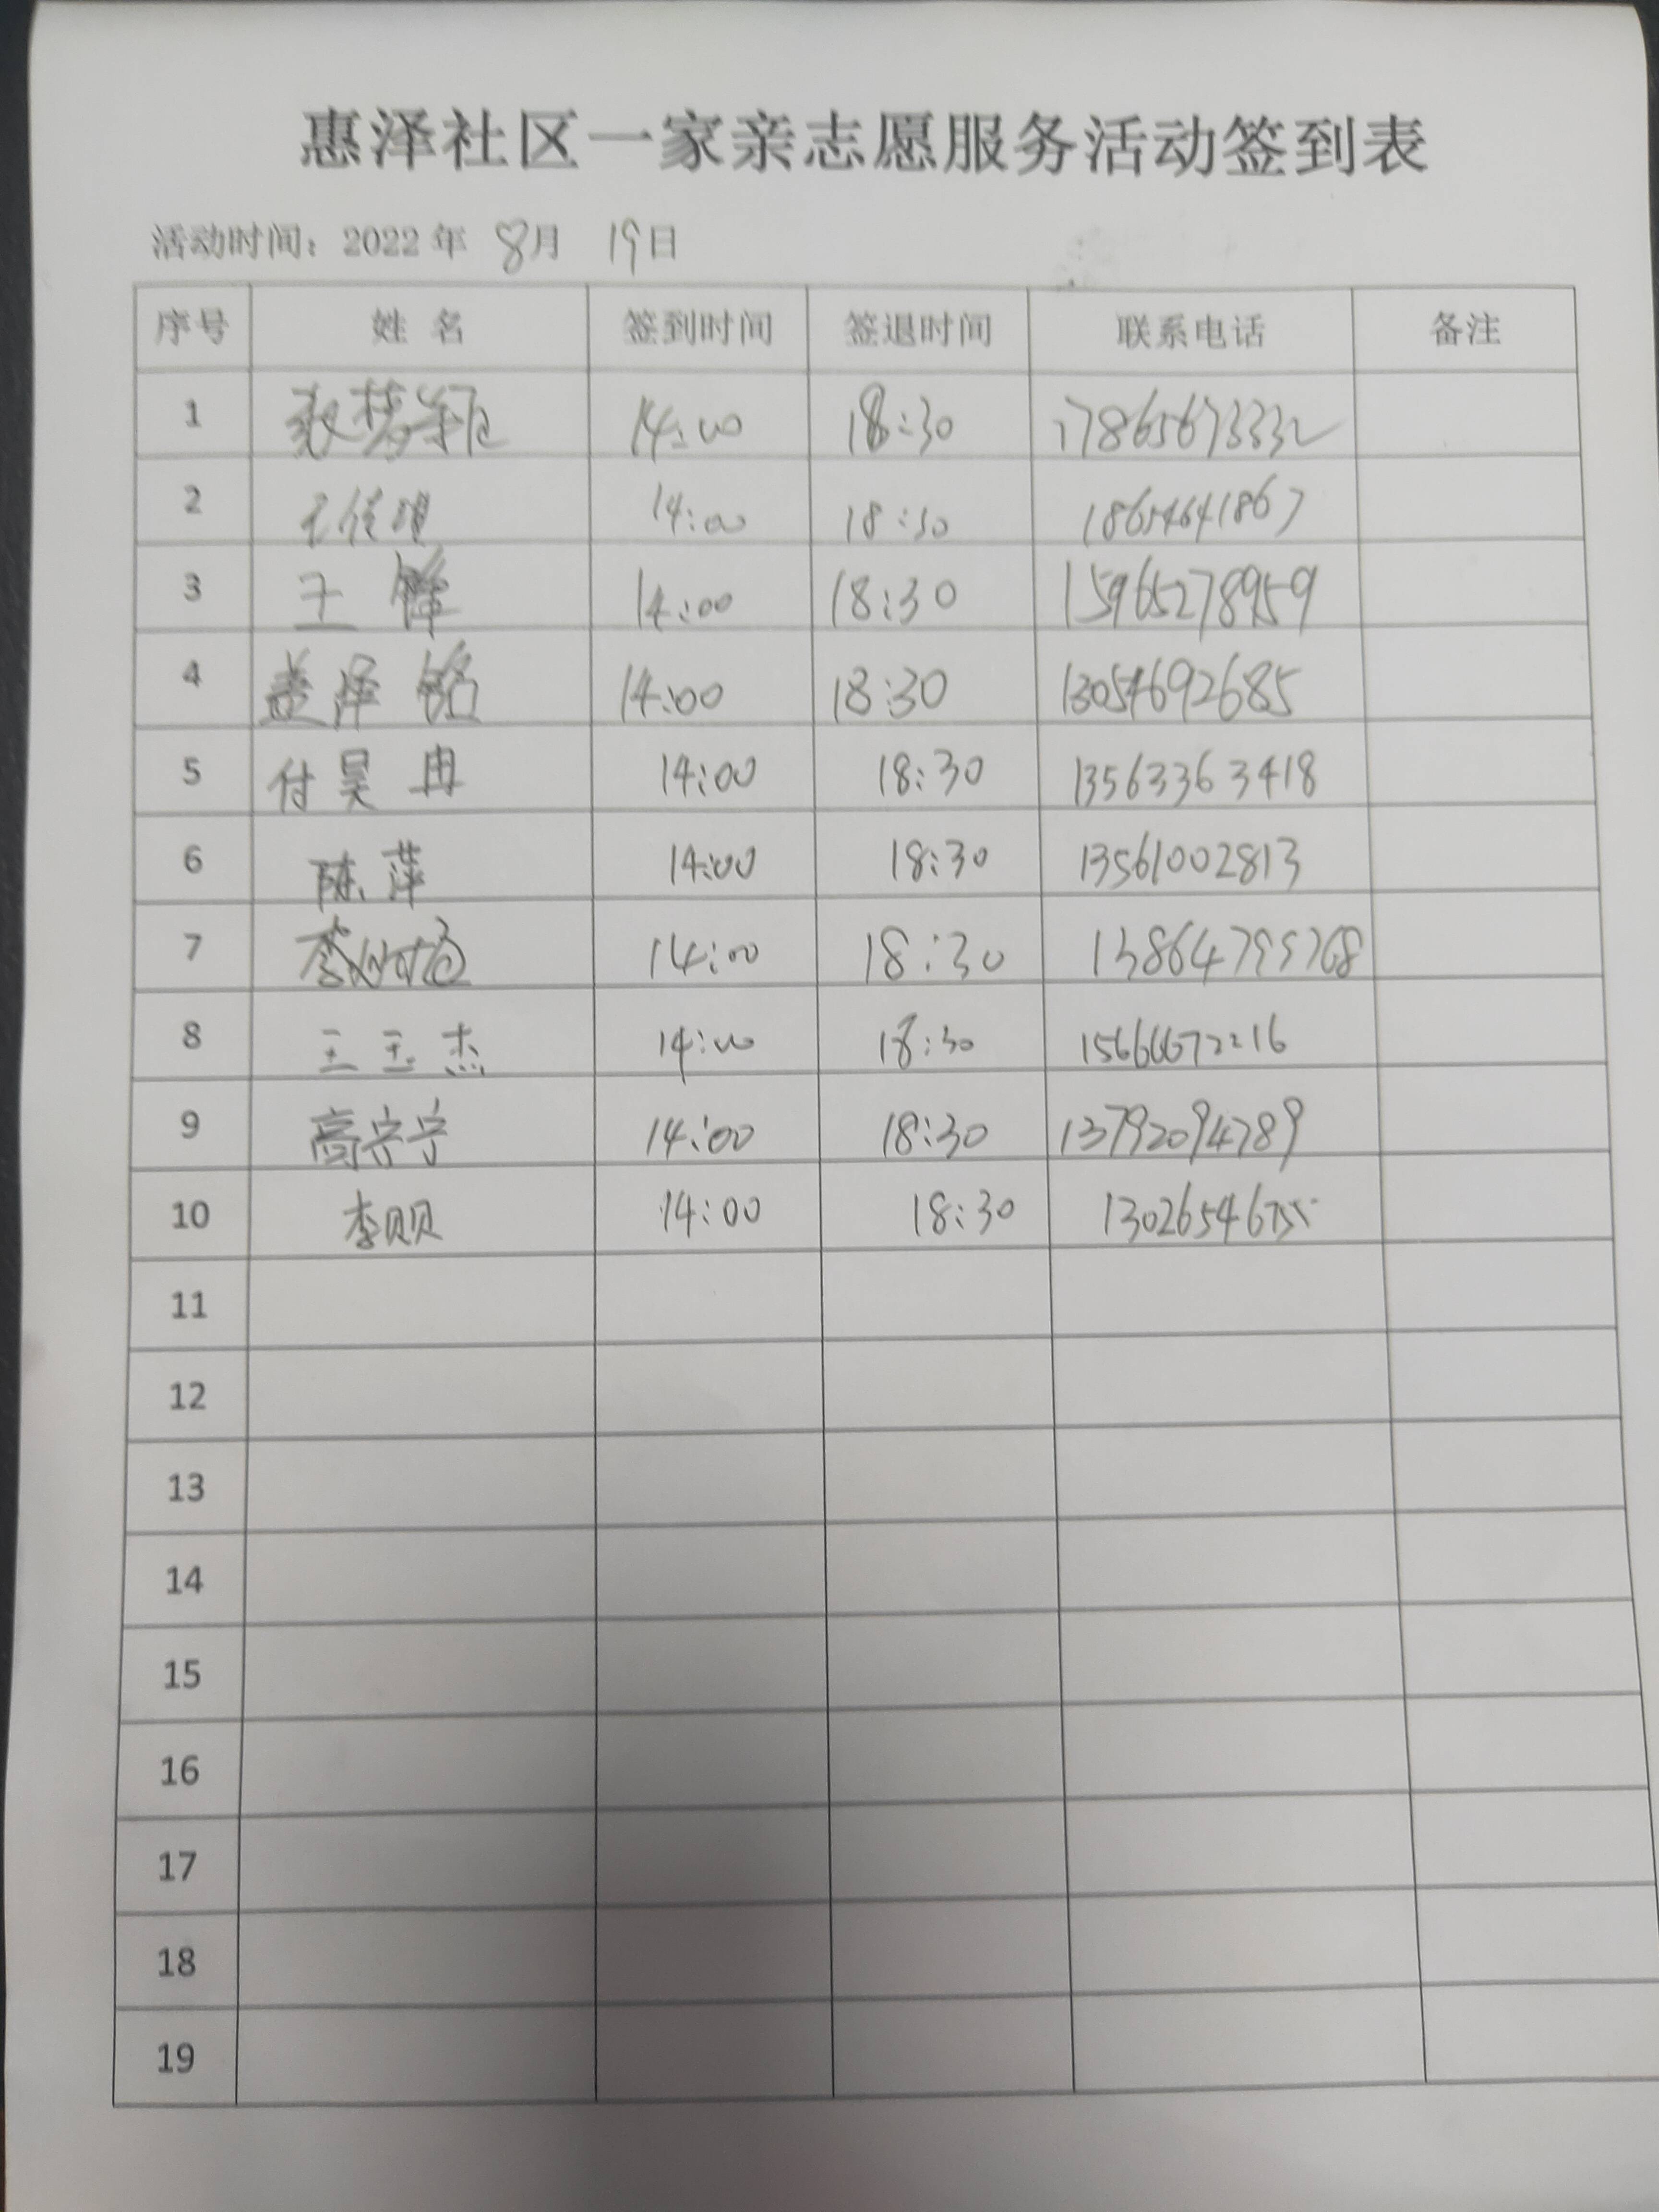 惠泽社区一家亲志愿服务活动签到表
活动时间：2022 年 8月 19日
序号 姓 名 签到时间 签退时间 联系电话 备注
1 14:00 18:30 17865673332
2 14:00 18:30 18654641867
3 王 锋 14:00 18:30 15965278959
4 盖泽铭 14:00 18:30 13054692685
5 付昊冉 14:00 18:30 13563363418
6 陈萍 14:00 18:30 13561002813
7 14:00 18:30
8 王玉杰 14:00 18:30 15666672216
9 高宁宁 14:00 18:30 13792094789
10 李贝贝 14:00 18:30 13026546755
11
12
13
14
15
16
17
18
19